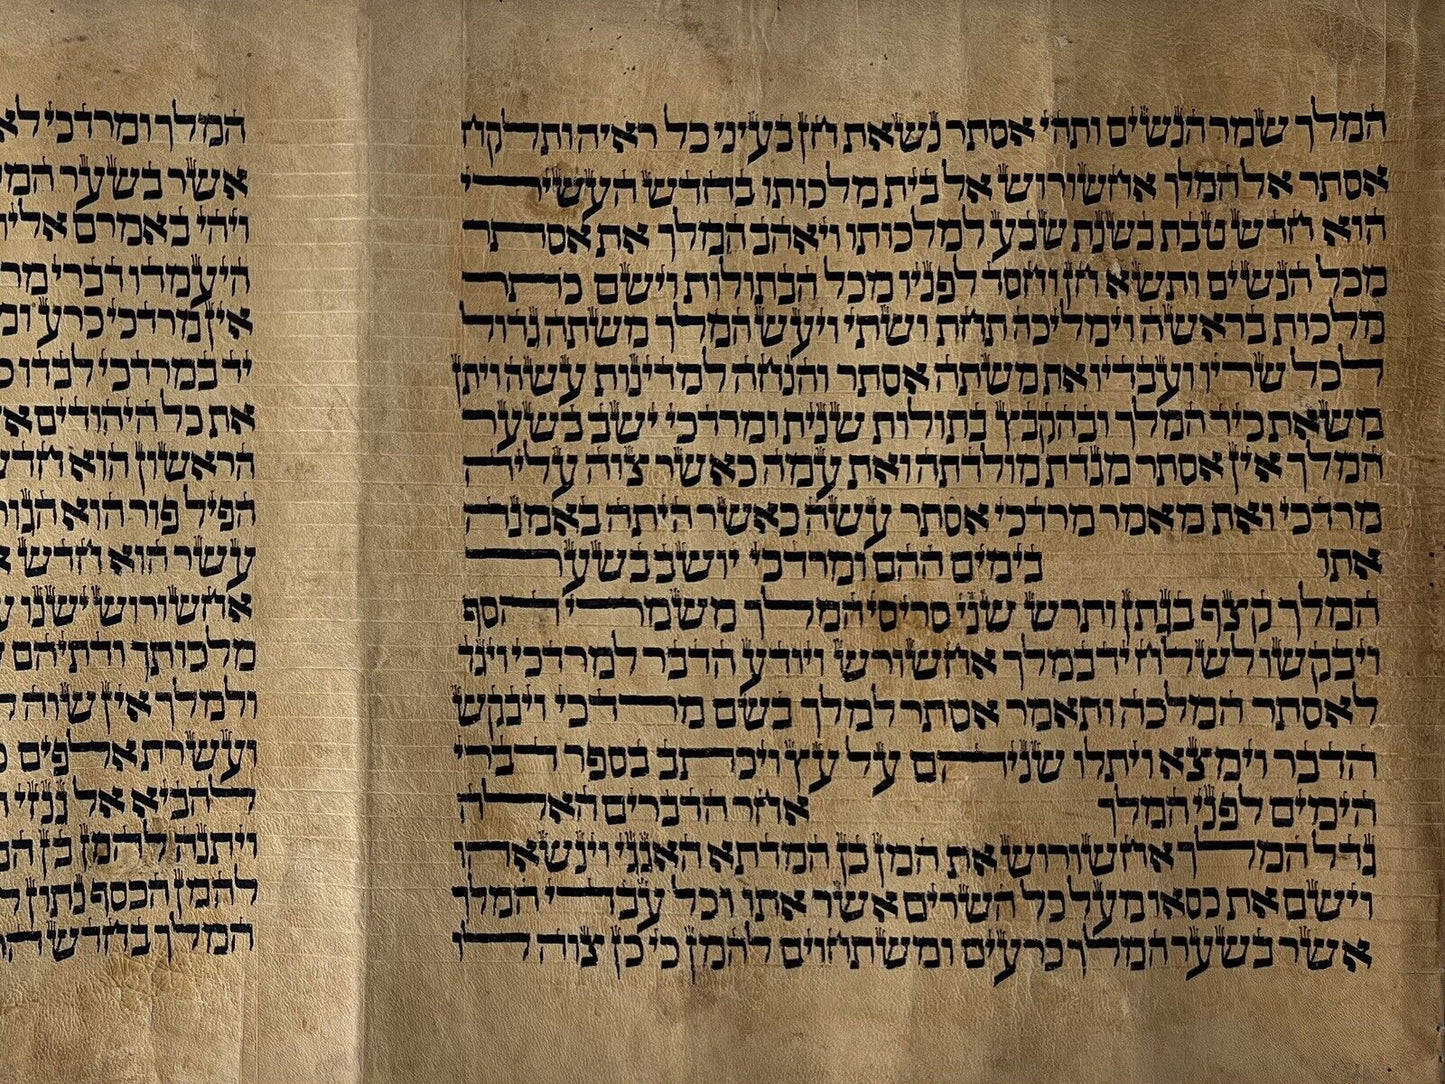 המלך שמר הנשים ותהי אסתר נשאת חן בעיני כל ראיה ותלקח
אסתר אל המלך אחשורוש אל בית מלכותו בחדש העשירי
הוא חדש טבת בשנת שבע למלכותו ויאהב המלך את אסתר
מכל הנשים ותשא חן וחסד לפניו מכל הבתולות וישם כתר
מלכות בראשה וימליכה תחת ושתי ויעש המלך משתה גדול
לכל שריו ועבדיו את משתה אסתר והנחה למדינות עשה ויתן
משאת כיד המלך ובהקבץ בתולות שנית ומרדכי ישב בשער
המלך אין אסתר מגדת מולדתה ואת עמה כאשר צוה עליה
מרדכי ואת מאמר מרדכי אסתר עשה כאשר היתה באמנה
אתו בימים ההם ומרדכי יושב בשער
המלך קצף בגתן ותרש שני סריסי המלך משמרי הסף
ויבקשו לשלח יד במלך אחשורש ויודע הדבר למרדכי ויגד
לאסתר המלכה ותאמר אסתר למלך בשם מרדכי ויבקש
הדבר וימצא ויתלו שניהם על עץ ויכתב בספר דברי
הימים לפני המלך אחר הדברים האלה
גדל המלך אחשורוש את המן בן המדתא האגגי וינשאהו
וישם את כסאו מעל כל השרים אשר אתו וכל עבדי המלך
אשר בשער המלך כרעים ומשתחוים להמן כי כן צוה לו
המלך ומרדכי לא
אשר בשער
ויהי באמרם
היעמדו דברי מר
אין מרדכי כרע ומ
יד במרדכי לבדו כ
את כל היהודים א
הראשון הוא חדש
הפיל פור הוא
עשר הוא חדש א
אחשורוש ישנו ע
מלכותך ודתיהם
ולמלך אין שוה
ועשרת אלפים כ
להביא אל גנזי
ויתנה להמן בן
להמן הכסף נתון ל
המלך בחדש